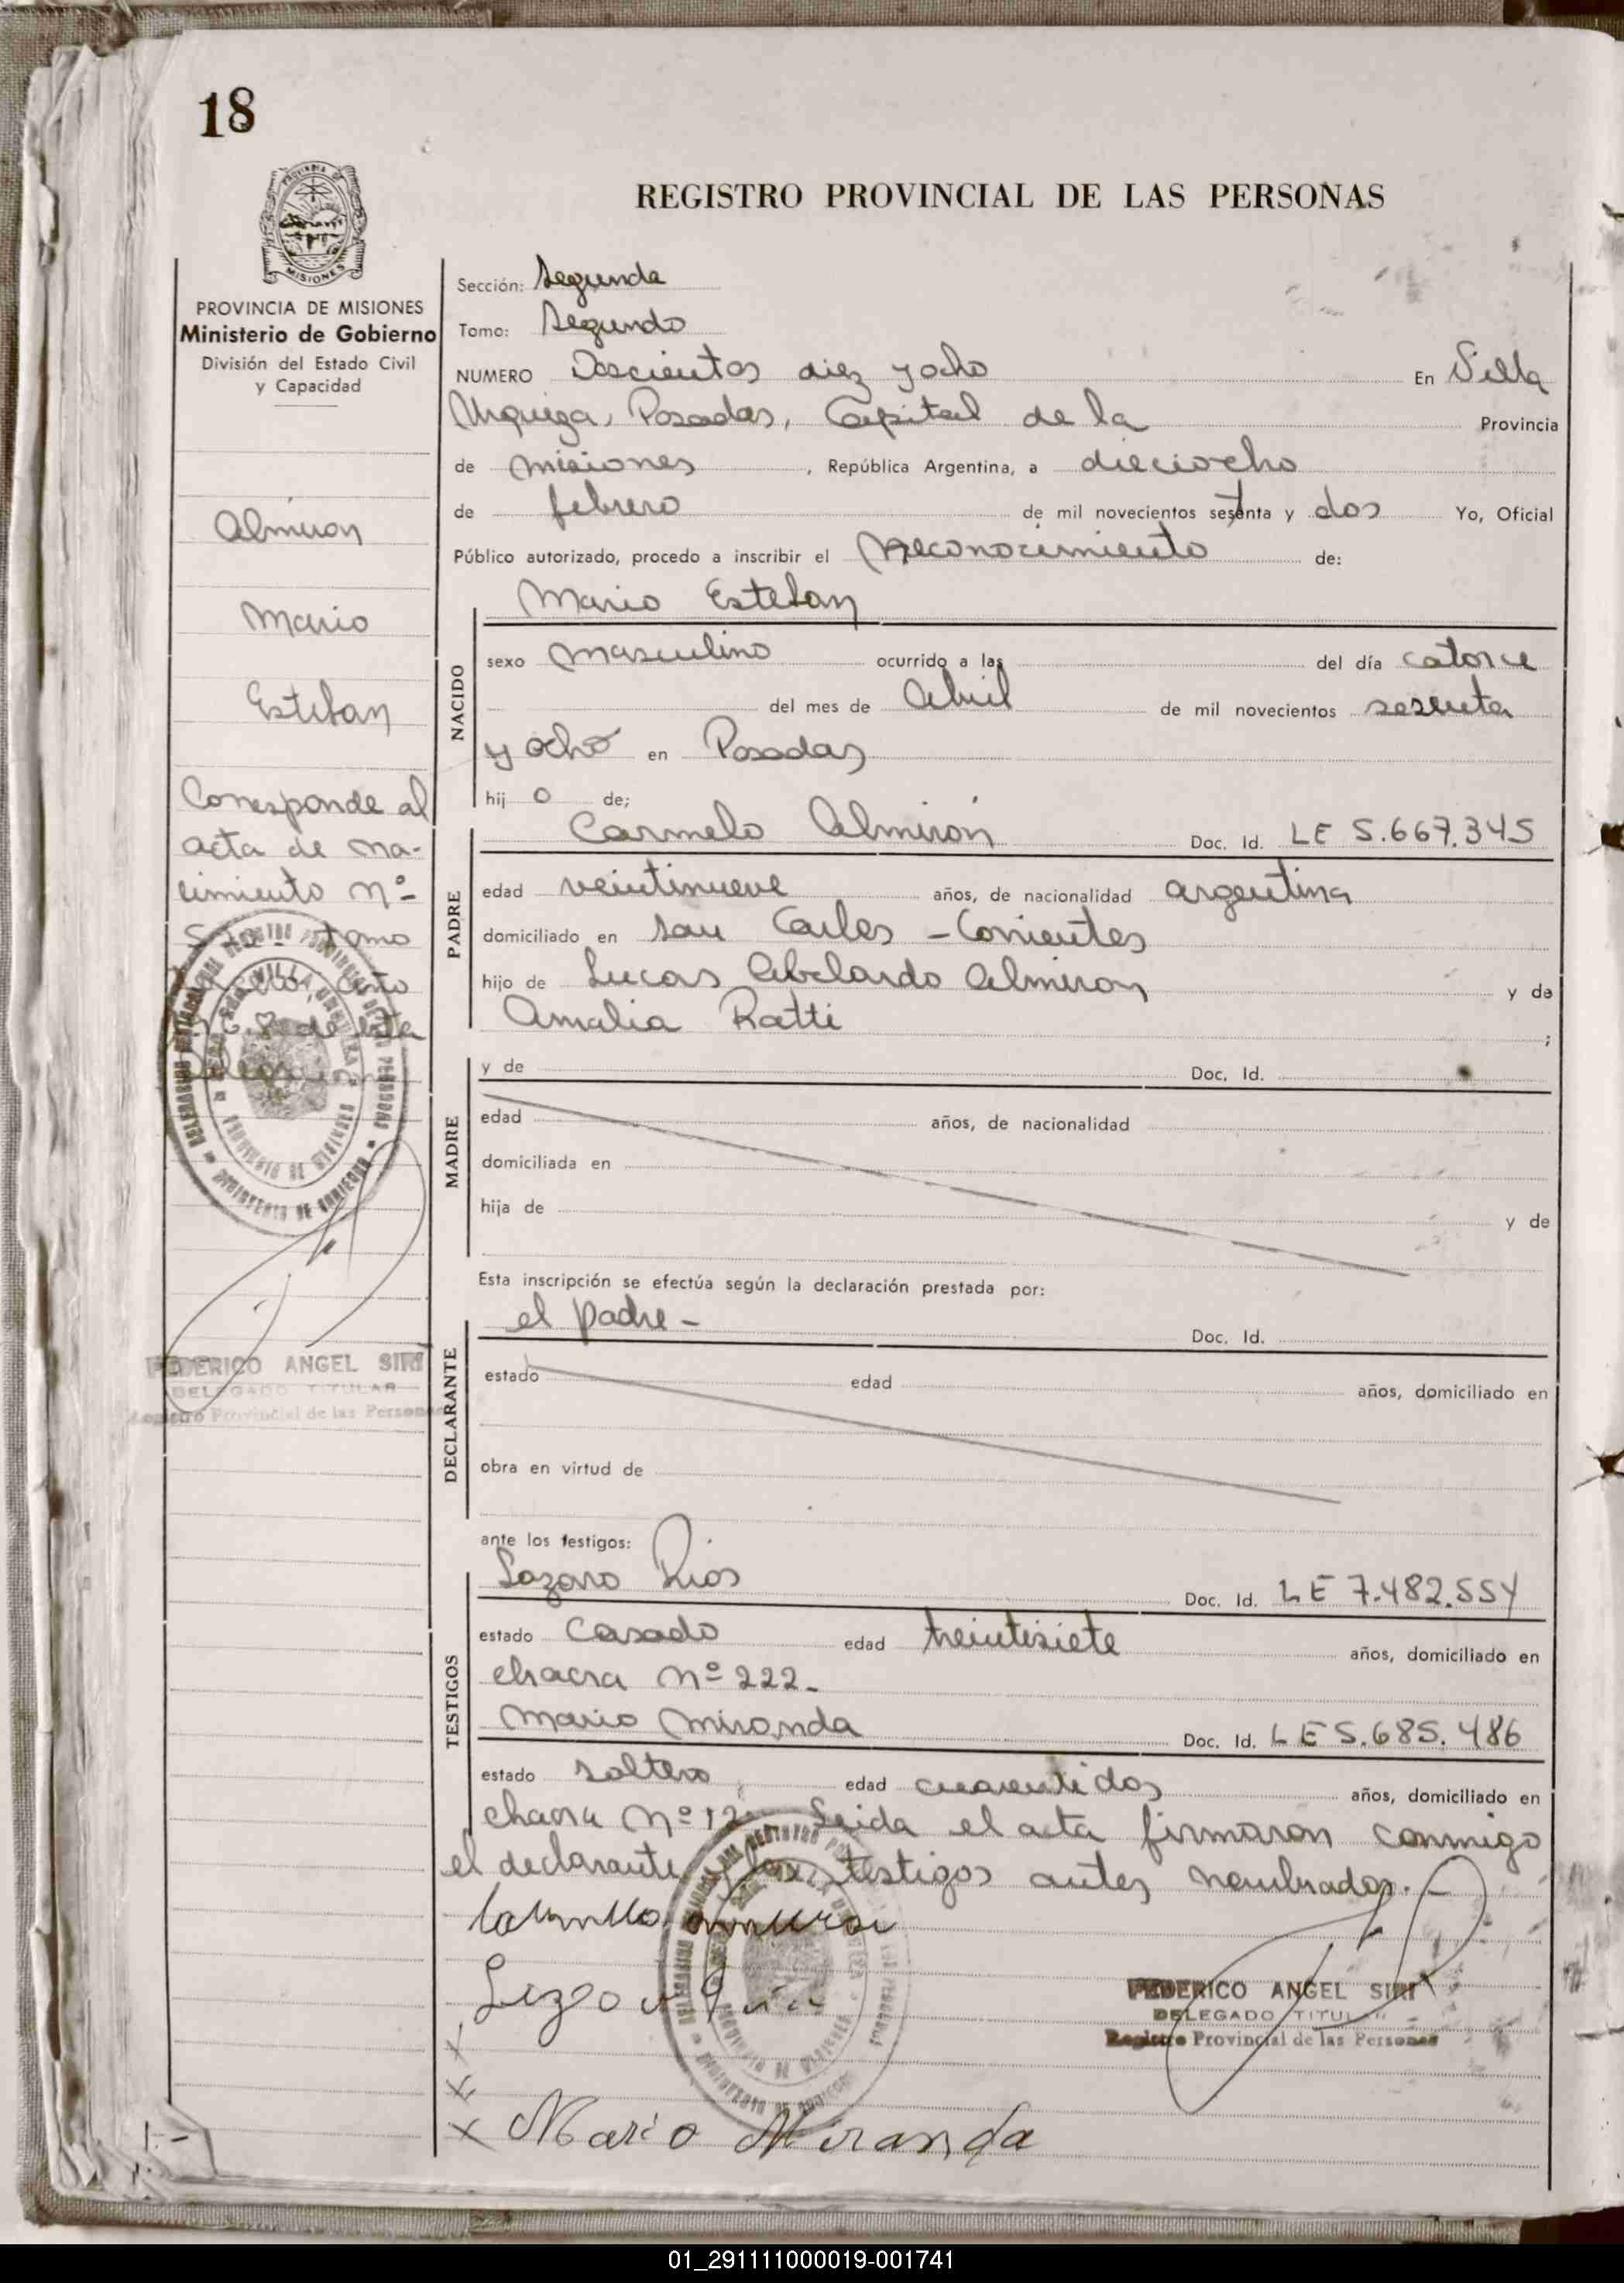 18
REGISTRO PROVINCIAL DE LAS PERSONAS
PROVINCIA DE MISIONES
Ministerio de Gobierno
División del Estado Civil
y Capacidad
Almiron
Mario
Esteban
Corresponde al
acta de na-
cimiento Nº
tomo
año
de esta
FEDERICO ANGEL SIRI
DELEGADO TITULAR
Registro Provincial de las Personas
Sección: Segunda
Tomo: Segundo
NUMERO Doscientos diez y ocho En Villa
Urquiza, Posadas, Capital de la Provincia
de Misiones, República Argentina, a dieciocho
de febrero de mil novecientos setenta y dos Yo, Oficial
Público autorizado, procedo a inscribir el Reconocimiento de:
Mario Esteban
NACIDO
sexo masculino ocurrido a las del día catorce
del mes de Abril de mil novecientos sesenta
y ocho en Posadas
hij o de;
Carmelo Almirón Doc. Id. LE 5.667.345
PADRE
edad veintinueve años, de nacionalidad argentina
domiciliado en San Carlos - Corrientes
hijo de Lucas Abelardo Almiron y de
Amalia Ratti ;
y de Doc. Id.
MADRE
edad años, de nacionalidad
domiciliada en
hija de y de
Esta inscripción se efectúa según la declaración prestada por:
el padre - Doc. Id.
DECLARANTE
estado edad años, domiciliado en
obra en virtud de
ante los testigos:
Lazaro Rios Doc. Id. LE 7.482.554
TESTIGOS
estado Casado edad treintisiete años, domiciliado en
chacra Nº 222.
Mario Miranda Doc. Id. LE 5.685.486
estado soltero edad cuarentidos años, domiciliado en
chacra Nº 12 Leida el acta firmaron conmigo
el declarante y los testigos antes nombrados. -
FEDERICO ANGEL SIRI
DELEGADO TITULAR
Registro Provincial de las Personas
Mario Miranda
01_291111000019-001741